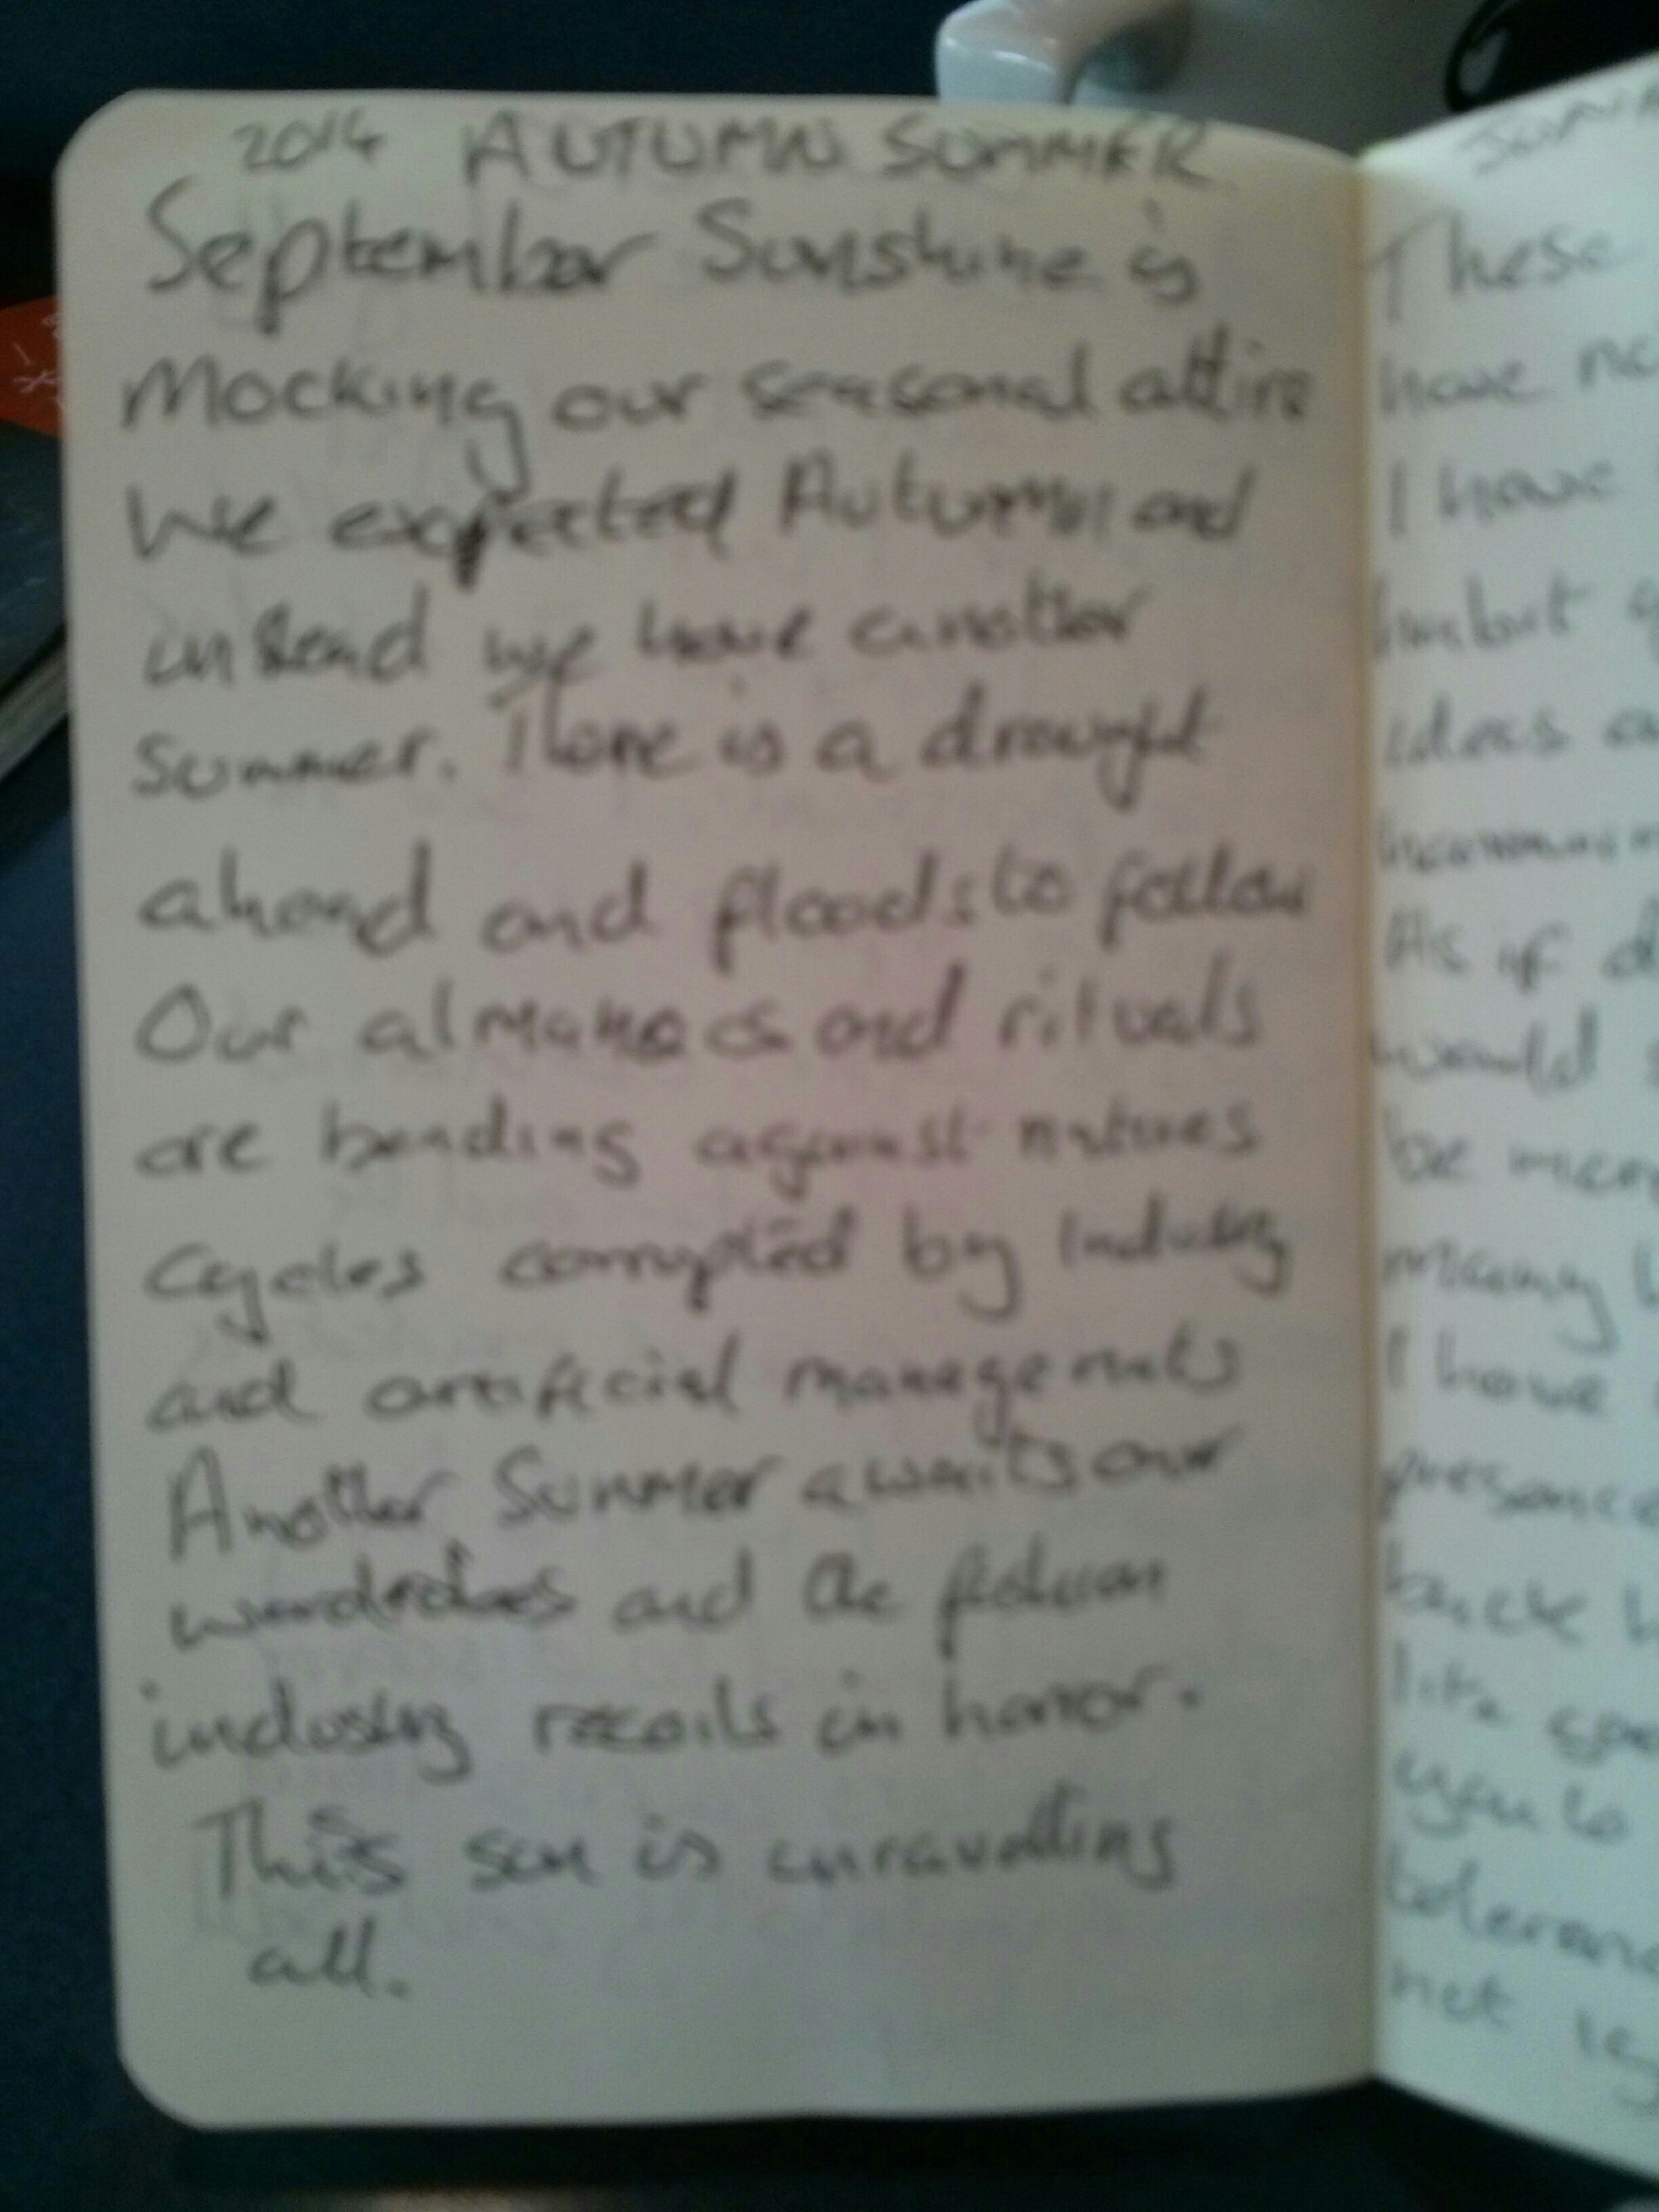 2014 AUTUMN SUMMER.
September Sunshine is
Mocking our seasonal attire
We expected Autumn and
instead we have another
summer. There is a drought
ahead and floods to follow
Our almanacs and rituals
are bending against natures
cycles corrupted by Industry
and artificial managements
Another Summer awaits our
wardrobes and the fashion
industry recoils in horror.
This sun is unravelling
all.
These
have
I have
ideas
As if
would
be
many
I have
presence
back
you to
not